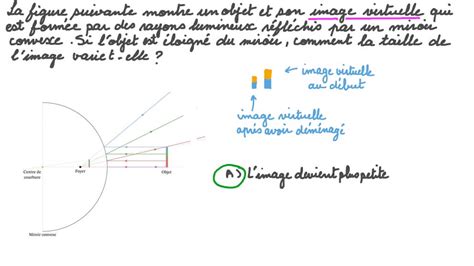 La figure suivante montre un objet et son image virtuelle qui
est formée par des rayons lumineux réfléchis par un miroir
convexe. Si l'objet est éloigné du miroir, comment la taille de
l'image variet-elle ?
image virtuelle
au début
image virtuelle
après avoir déménagé
A) L'image devient plus petite
Centre de
courbure
Foyer
Objet
Miroir convexe